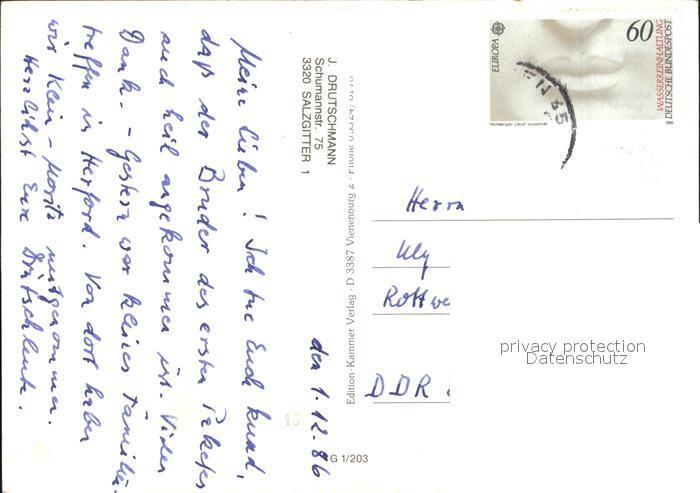 J. DRUTSCHMANN
Schumannstr. 75
3320 SALZGITTER 1
den 1.12.86
Meine Lieben! Ich tue Euch kund,
daß der Bruder des ersten Paketes
auch heil angekommen ist. Vielen
Dank. - Gestern war kleines Familien-
treffen in Herford. Von dort haben
wir Klein-Moritz mitgenommen.
Herzlichst Eure Drutschleute.
Edition-Kammer Verlag · D 3387 Vienenburg 2 · Phone
15
G 1/203
EUROPA
60
WASSERREINHALTUNG
DEUTSCHE BUNDESPOST
Herrn
Rottwe
DDR
privacy protection
Datenschutz